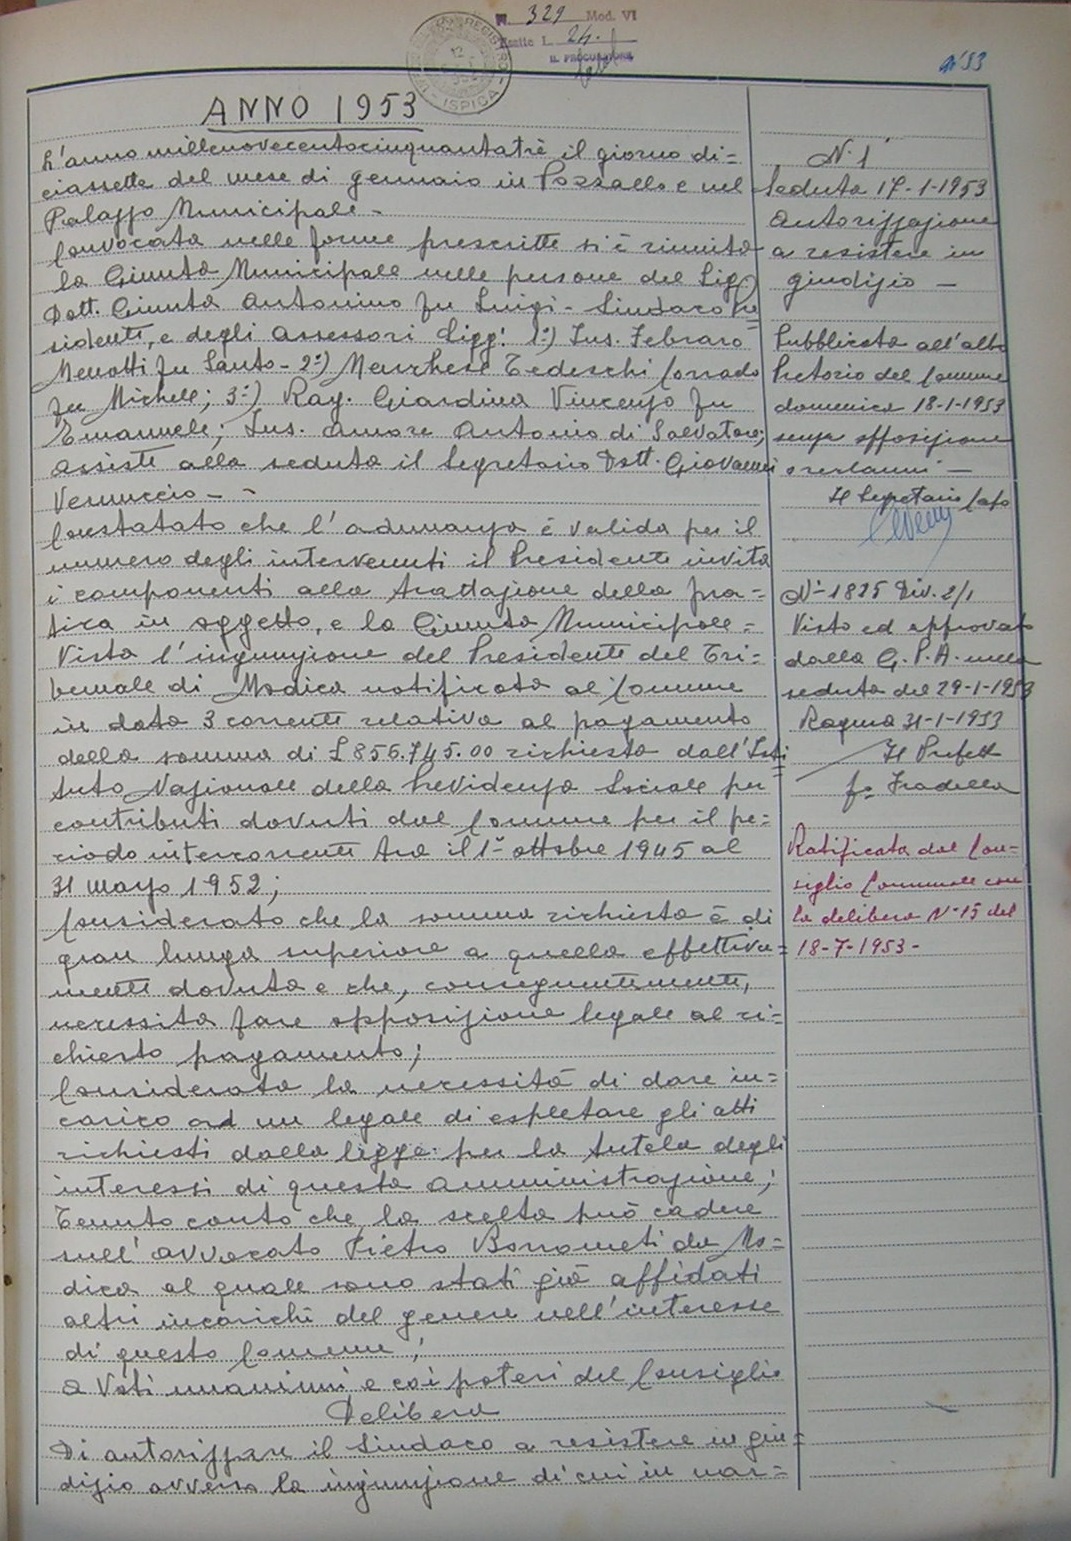 N. 329 Mod. VI
Esatte L. 24.
IL PROCURATORE
REGISTRO
ISPICA
N° 53
ANNO 1953
L'anno millenovecentocinquantatrè il giorno di=
ciassette del mese di gennaio in Pozzallo e nel
Palazzo Municipale -
Convocata nelle forme prescritte si è riunita
la Giunta Municipale nelle persone del Sig.
Dott. Giunta Antonino fu Luigi - Sindaco Pre=
sidente, e degli Assessori Sigg: 1°) Ins. Febraro
Menotti fu Santo - 2°) Marchese Tedeschi Corrado
fu Michele; 3°) Rag. Giardina Vincenzo fu
Emanuele; Ins. Amore Antonio di Salvatore;
assiste alla seduta il Segretario Dott. Giovanni
Vernuccio - -
Constatato che l'adunanza è valida per il
numero degli intervenuti il Presidente invita
i componenti alla trattazione della pra=
tica in oggetto, e la Giunta Municipale =
Vista l'ingiunzione del Presidente del Tri=
bunale di Modica notificata al Comune
in data 3 corrente relativa al pagamento
della somma di £ 856.745.00 richiesta dall'Isti=
tuto Nazionale della Previdenza Sociale per
contributi dovuti dal Comune per il pe=
riodo intercorrente tra il 1° ottobre 1945 al
31 marzo 1952;
Considerato che la somma richiesta è di
gran lunga superiore a quella effettiva=
mente dovuta e che, conseguentemente,
necessita fare opposizione legale al ri=
chiesto pagamento;
Considerata la necessità di dare in=
carico ad un legale di espletare gli atti
richiesti dalla legge per la tutela degli
interessi di questa amministrazione;
Tenuto conto che la scelta può cadere
sull'avvocato Pietro Borrometi da Mo=
dica al quale sono stati già affidati
altri incarichi del genere nell'interesse
di questo Comune;
a Voti unanimi e coi poteri del Consiglio
Delibera
Di autorizzare il Sindaco a resistere in giu=
dizio avverso la ingiunzione di cui in nar=
N. 1
Seduta 17-1-1953
Autorizzazione
a resistere in
giudizio -
Pubblicata all'albo
Pretorio del Comune
domenica 18-1-1953
senza opposizione
o reclami -
Il Segretario Capo
N° 1825 Div. 2/1
Visto ed approvato
dalla G.P.A. nella
seduta del 29-1-1953
Ragusa 31-1-1953
Il Prefetto
fo Fradella
Ratificata dal Con=
siglio Comunale con
la delibera N° 15 del
18-7-1953 -